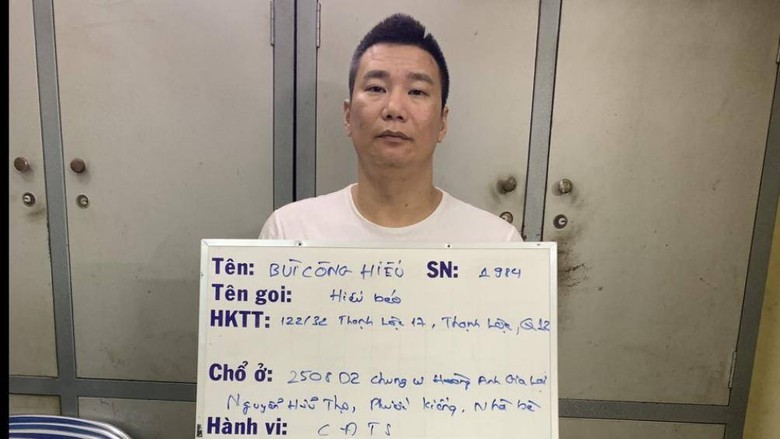 Tên: BÙI CÔNG HIẾU SN: 1984
Tên gọi: Hiếu béo
HKTT: 122/32 Thạnh Lộc 17, Thạnh Lộc, Q12
Chổ ở: 2508 D2 chung cư Hoàng Anh Gia Lai
Nguyễn Hữu Thọ, Phước Kiểng, Nhà bè
Hành vi: CĐTS